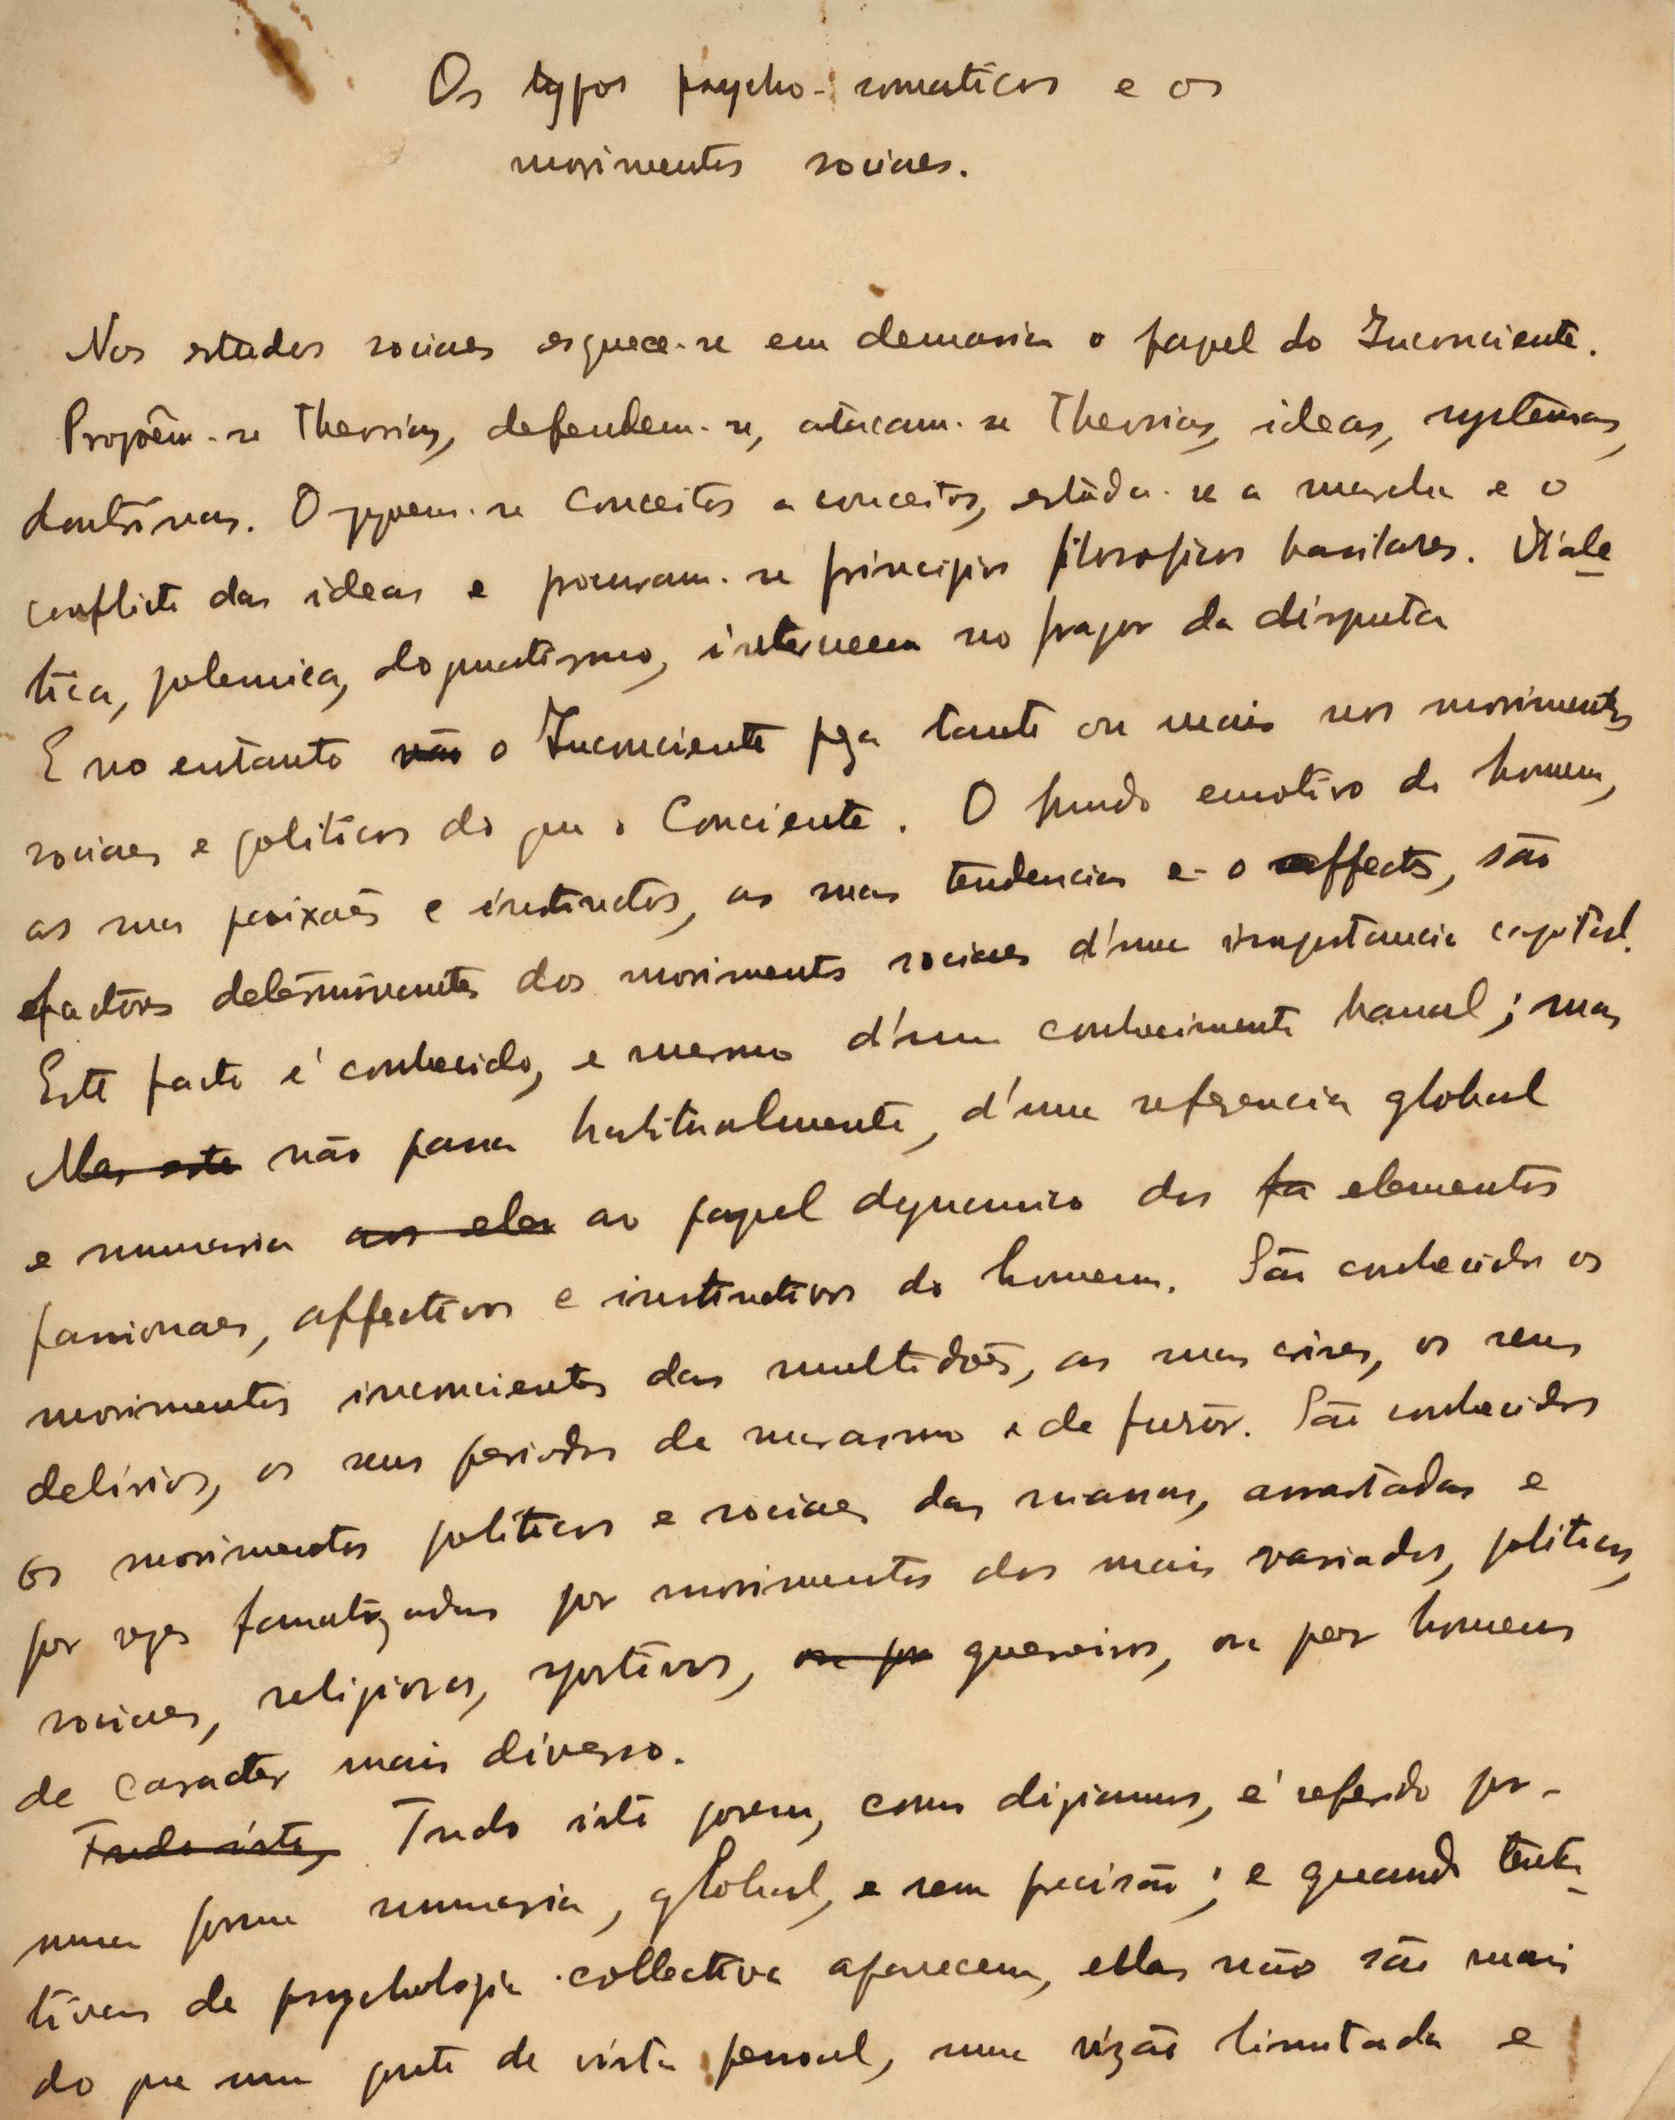 Os typos psycho-somaticos e os
movimentos sociaes.
Nos estudos sociaes esquece-se em demasia o papel do Inconciente.
Propõem-se Theorias, defendem-se, atacam-se Theorias, ideas, systemas,
doutrinas. Oppoem-se conceitos a conceitos, estuda-se a marcha e o
conflicto das ideas e procuram-se principios filosoficos basilares. Diale
tica, polemica, dogmatismo, intervem no fragor da disputa
E no entanto não o Inconciente pesa tanto ou mais nos movimentos
sociaes e politicos do que o Conciente. O fundo emotivo do homem,
as suas paixões e instinctos, as suas tendencias e o affecto, são
factores determinantes dos movimentos sociaes d'uma importancia capital.
Este facto é conhecido, e mesmo d'um conhecimento banal; mas
Mas este não passa habitualmente, d'uma referencia global
e summaria aos eles ao papel dynamico dos fa elementos
passionaes, affectivos e instinctivos do homem. São conhecidos os
movimentos inconcientes das multidões, as suas crises, os seus
delirios, os seus periodos de marasmo e de furor. São conhecidos
os movimentos politicos e sociaes das massas, arrastadas e
por vezes fanatizadas por movimentos dos mais variados, politicos,
sociaes, religiosos, sportivos, ou por guerreiros, ou por homens
de caracter mais diverso.
Tudo isto, Tudo isto porem, como diziamos, é referido por-
uma forma summaria, global, e sem precisão; e quando tenta
tivas de psychologia collectiva aparecem, ellas não são mais
do que um ponto de vista pessoal, uma vizão limitada e